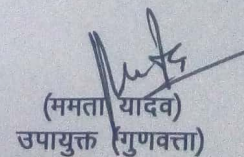 (ममता यादव)
उपायुक्त (गुणवत्ता)